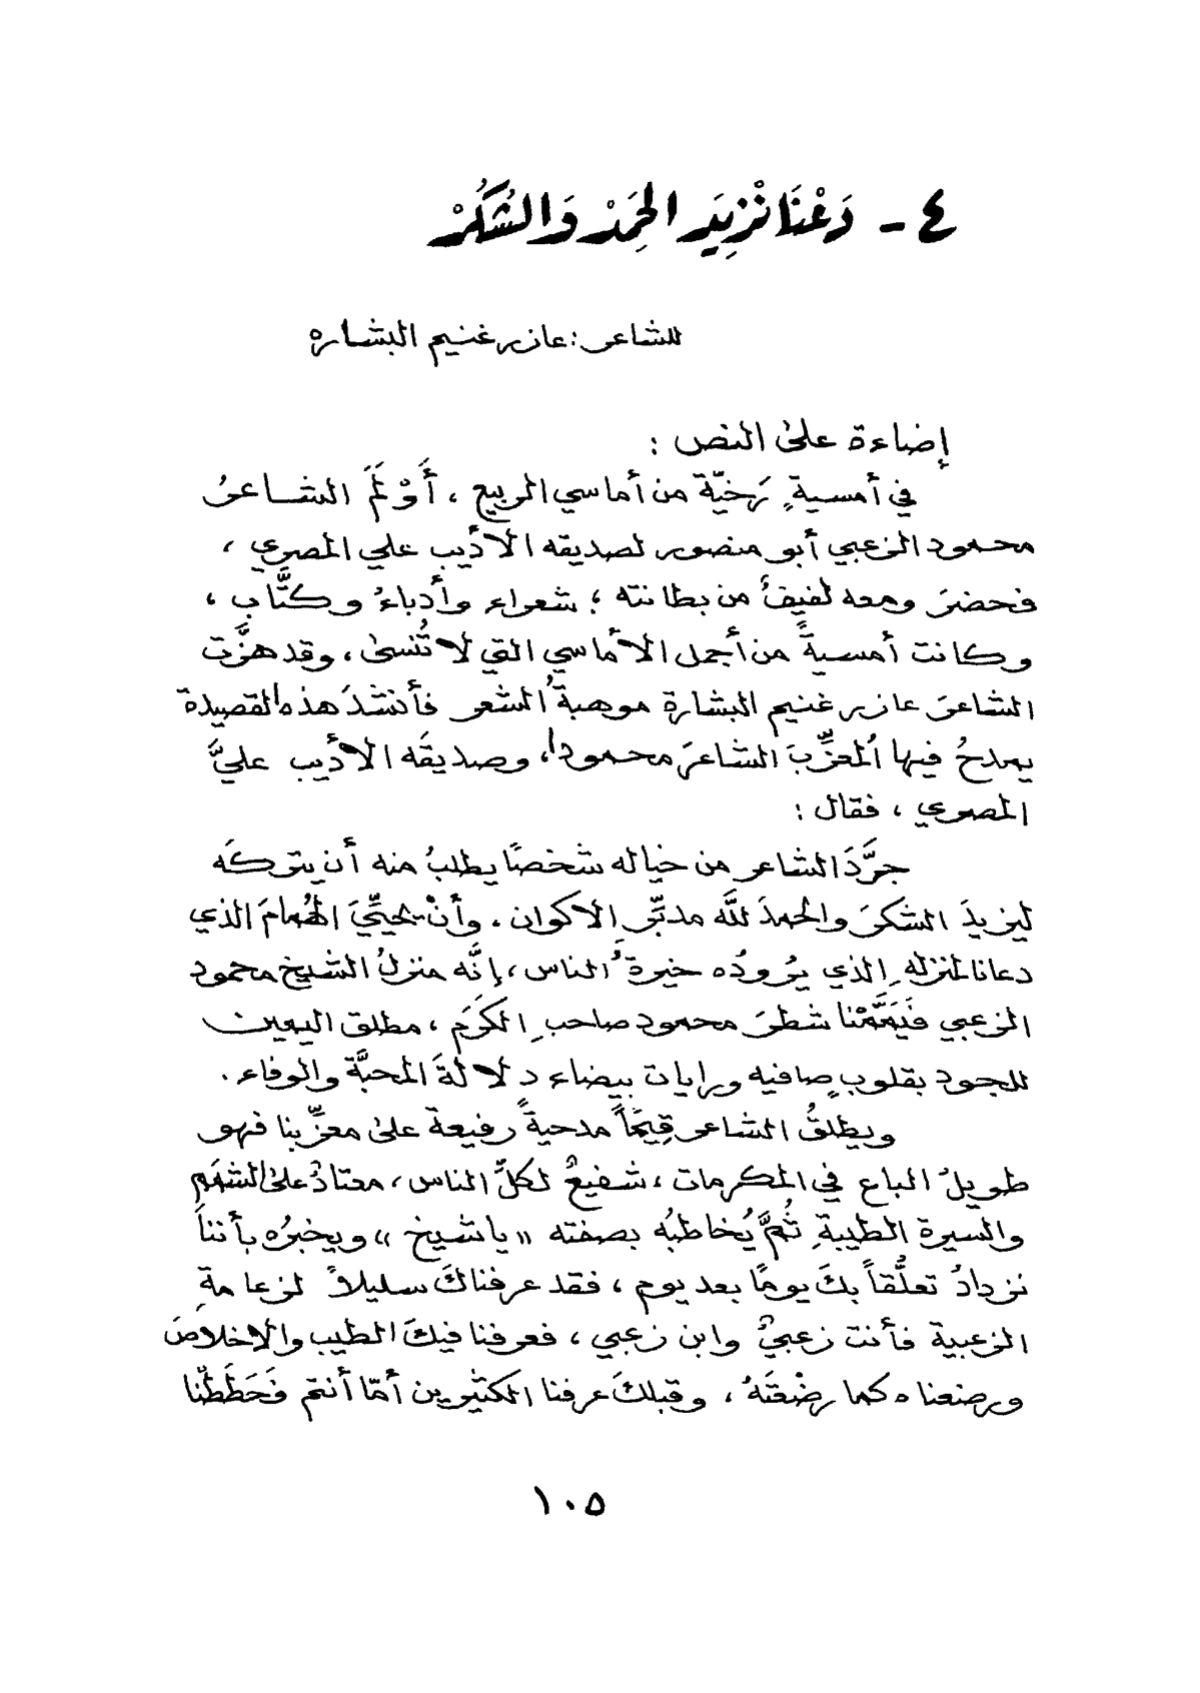 ٤ - دَعْنَا نْزِيَد الحَمِدْ وَالشُكُرْ
للشاعر : عازر غنيم البشاره
إضاءة على النص :
في أمسيةٍ رَخيّة من أماسي الربيع ، أَوْلَمَ الشاعرُ
محمود الزعبي أبو منصور لصديقه الأديب علي المصري ،
فحضرَ ومعه لفيفٌ من بطانته ؛ شعراء وأدباءُ وكتَّاب ،
وكانت أمسيةً من أجمل الأماسي التي لا تُنسى ، وقد هزَّت
الشاعرَ عازر غنيم البشارة موهبةُ الشعر فأنشدَ هذه القصيدة
يمدحُ فيها المُعزِّبَ الشاعرَ محمودا ، وصديقَه الأديب عليَّ
المصري ، فقال :
جرَّدَ الشاعر من خياله شخصًا يطلبُ منه أن يتركَه
ليزيدَ الشكرَ والحمدَ للَّه مدبّرِ الاكوان ، وأنْ يحيِّيَ الهُمامَ الذي
دعانا لمنزلهِ الذي يرُودُه خيرةُ الناس ، إنَّه منزلُ الشيخ محمود
الزعبي فَيَمَّمْنا شطرَ محمود صاحبِ الكَرَم ، مطلق اليمين
للجود بقلوبٍ صافيه ورايات بيضاء دلالةَ المحبَّة والوفاء .
ويطلقُ الشاعر قِيَمًا مدحيةً رفيعة على معزّبنا فهو
طويلُ الباع في المكرمات ، شفيعٌ لكلِّ الناس ، معتادٌ على الشَمَم
والسيرة الطيبةِ ثُمَّ يُخاطبُه بصفته « يا شيخ » ويخبرُه بأننا
نزدادُ تعلُّقاً بكَ يومًا بعد يوم ، فقد عرفناكَ سليلاً لزعامةِ
الزعبية فأنت زعبيٌّ وابن زعبي ، فعرفنا فيكَ الطيب والاخلاصَ
ورضعناه كما رضْعتَهُ ، وقبلكَ عرفنا الكثيرين أمّا أنتم فَحَطَطْنا
١٠٥